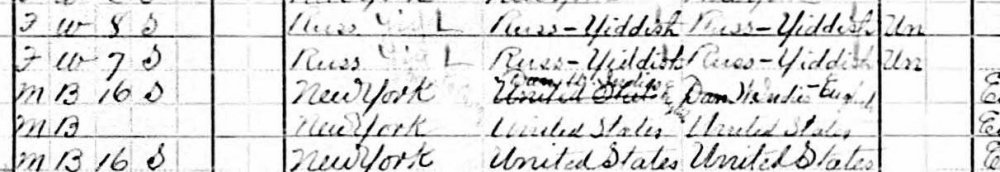 F W 8 S Russ Yid L Russ-Yiddish Russ-Yiddish Un
F W 7 S Russ Yid L Russ-Yiddish Russ-Yiddish Un
M B 16 S New York United Dan W Indies Dan W Indies-English E
M B New York United States United States E
M B 16 S New York United States United States E